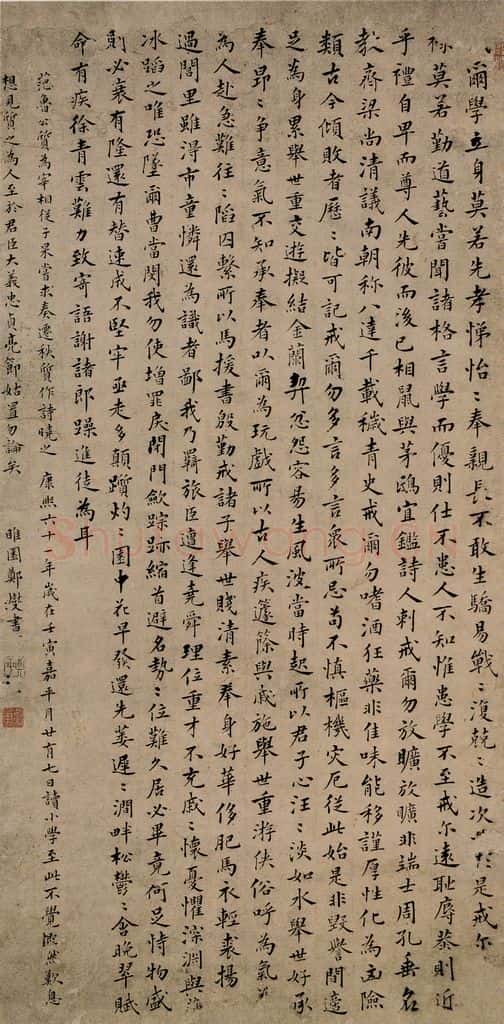 爾學立身莫若先孝悌怡〻奉親長不敢生驕易戰〻復兢〻造次於是戒尔
祿莫若勤道藝嘗聞諸格言學而優則仕不患人不知惟患學不至戒尔遠恥辱恭則近
乎禮自卑而尊人先彼而後己相鼠與茅鴟宜鑑詩人刺戒爾勿放曠放曠非端士周孔垂名
教齊梁尚清議南朝称八達千載穢青史戒爾勿嗜酒狂藥非佳味能移謹厚性化為凶險
類古今傾敗者歷〻皆可記戒爾勿多言多言衆所忌苟不慎樞機灾厄從此始是非毀譽間適
足為身累舉世重交遊擬結金蘭契忿怨容易生風波當時起所以君子心汪〻淡如水舉世好承
奉昂〻争意氣不知承奉者以爾為玩戲所以古人疾籧篨與戚施舉世重游俠俗呼為氣
為人赴急難往〻陷囚繫所以馬援書殷勤戒諸子舉世賤清素奉身好華侈肥馬衣輕裘揚
過閭里雖得市童憐還為識者鄙我乃羈旅臣遭逢堯舜理位重才不充戚〻懷憂懼深淵與
冰蹈之唯恐墜爾曹當閔我勿使增罪戾閉門歛踪跡縮首避名勢〻位難久居必畢竟何足恃物盛
則必衰有隆還有替速成不堅牢亟走多顛躓灼〻園中花早發還先萎遲〻澗畔松鬱〻含晚翠賦
命有疾徐青雲難力致寄語謝諸郎躁進徒為耳
范魯公質為宰相從子杲嘗求奏遷秩質作詩曉之 康熙六十一年歲在壬寅嘉平月廿有七日讀小學至此不覺慨然歎息
想見質之為人至於君臣大義忠貞亮節姑置勿論矣 睢園鄭燮書